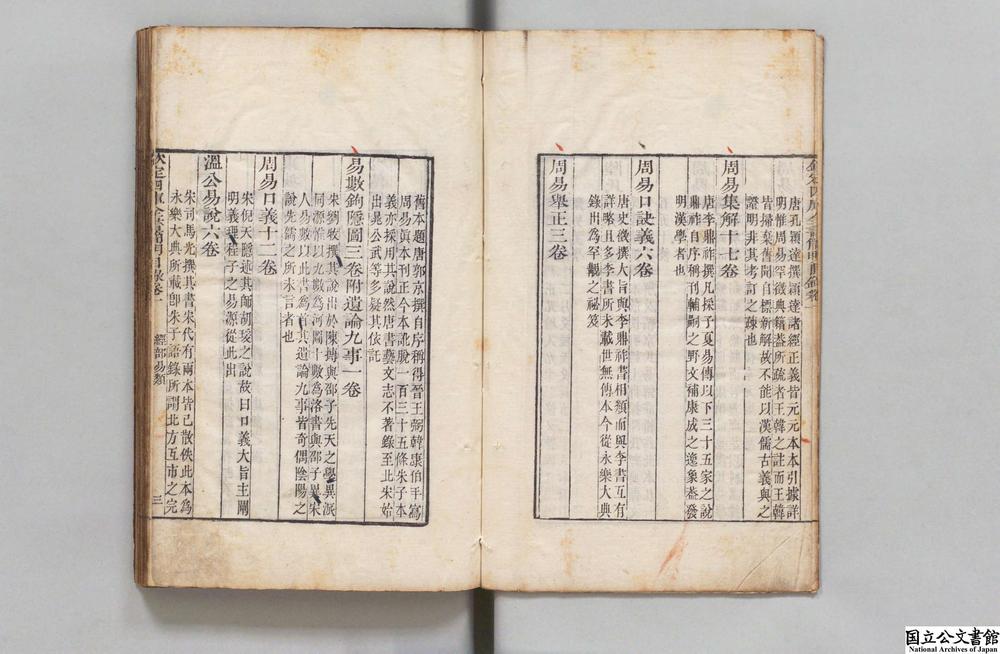 唐孔穎達撰穎達諸經正義皆元元本本引據詳
明惟周易罕徵典籍葢所疏者王韓之註而王韓
皆掃棄舊聞自標新解故不能以漢儒古義與之
證明非其考訂之疎也
周易集解十七卷
唐李鼎祚撰凡採子夏易傳以下三十五家之說
鼎祚自序稱刊輔嗣之野文補康成之逸象葢發
明漢學者也
周易口訣義六卷
唐史徵撰大旨與李鼎祚書相類而與李書互有
詳略且多李書所未載世無傳本今從永樂大典
錄出爲罕覯之祕笈
周易舉正三卷
舊本題唐郭京撰自序稱得晉王弼韓康伯手寫
周易眞本刊正今本訛脫一百三十五條朱子本
義亦採用其說然唐書藝文志不著錄至北宋始
出晁公武等多疑其依託
易數鉤隱圖三卷附遺論九事一卷
宋劉牧撰其說出於陳摶與邵子先天之學異派
同源惟以九數爲河圖十數爲洛書與邵子異宋
人易數以此書爲首其遺論九事者奇偶陰陽之
說先儒之所未言者也
周易口義十二卷
宋倪天隱述其師胡瑗之說故曰口義大旨主闡
明義理程子之易源從此出
溫公易說六卷
宋司馬光撰其書宋代有兩本皆已散佚此本爲
永樂大典所載卽朱子語錄所謂北方互市之完
欽定四庫全書簡明目錄卷一
經部易類
三
国立公文書館
National Archives of Japan